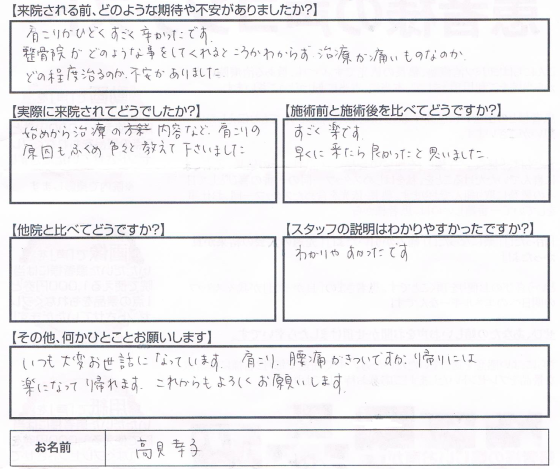 【来院される前、どのような期待や不安がありましたか?】
肩こりがひどくすごく辛かったです。
整骨院がどのような事をしてくれるところかわからず 治療が痛いものなのか、
どの程度治るのか、不安がありました。
【実際に来院されてどうでしたか?】
始めから治療の内容など、肩こりの
原因もふくめ 色々と教えて下さいました
【施術前と施術後を比べてどうですか?】
すごく楽です。
早くに来たら良かったと思いました
【他院と比べてどうですか?】
【スタッフの説明はわかりやすかったですか?】
わかりやすかったです
【その他、何かひとことお願いします】
いつも大変お世話になっています。肩こり、腰痛がきついですが、帰りには
楽になって帰れます。これからもよろしくお願いします。
お名前
高見幸子